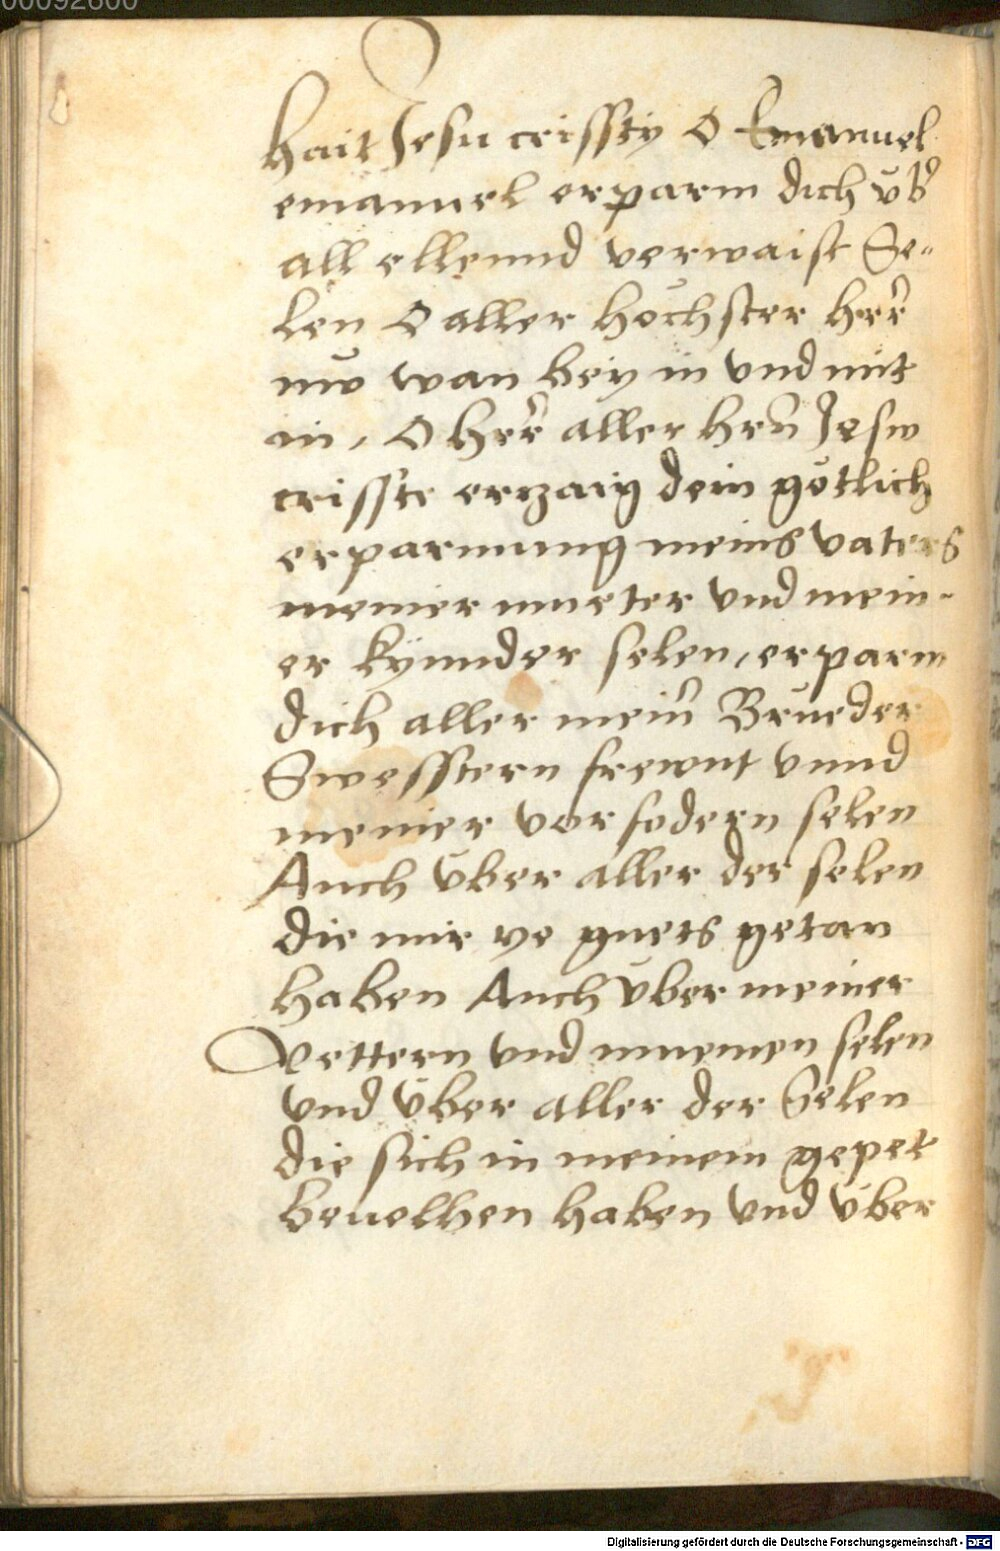 00092600
hait Jesu crissty O Emanuel
emanuel erparm dich v̈b̾
all ellennd verwaist Se⸗
len O aller hochster her̄
nw̆ wan bey in vnd mit
in, O her̄ aller hrn̄ Jesw
crisste erczaig dein götlich
erparmung meins vaters
meiner mueter vnd mein-
er kynnder selen, erparm
dich aller mein̄ Brueder
Swesstern frewnt vnnd
meiner vorfodern selen
Auch v̈ber aller der selen
die mir ye guets getan
haben Auch v̈ber meiner
Vettern vnd muemen selen
vnd v̈ber aller der Selen
die sich in meinem gepet
beuelhen haben vnd v̈ber
Digitalisierung gefördert durch die Deutsche Forschungsgemeinschaft - DFG